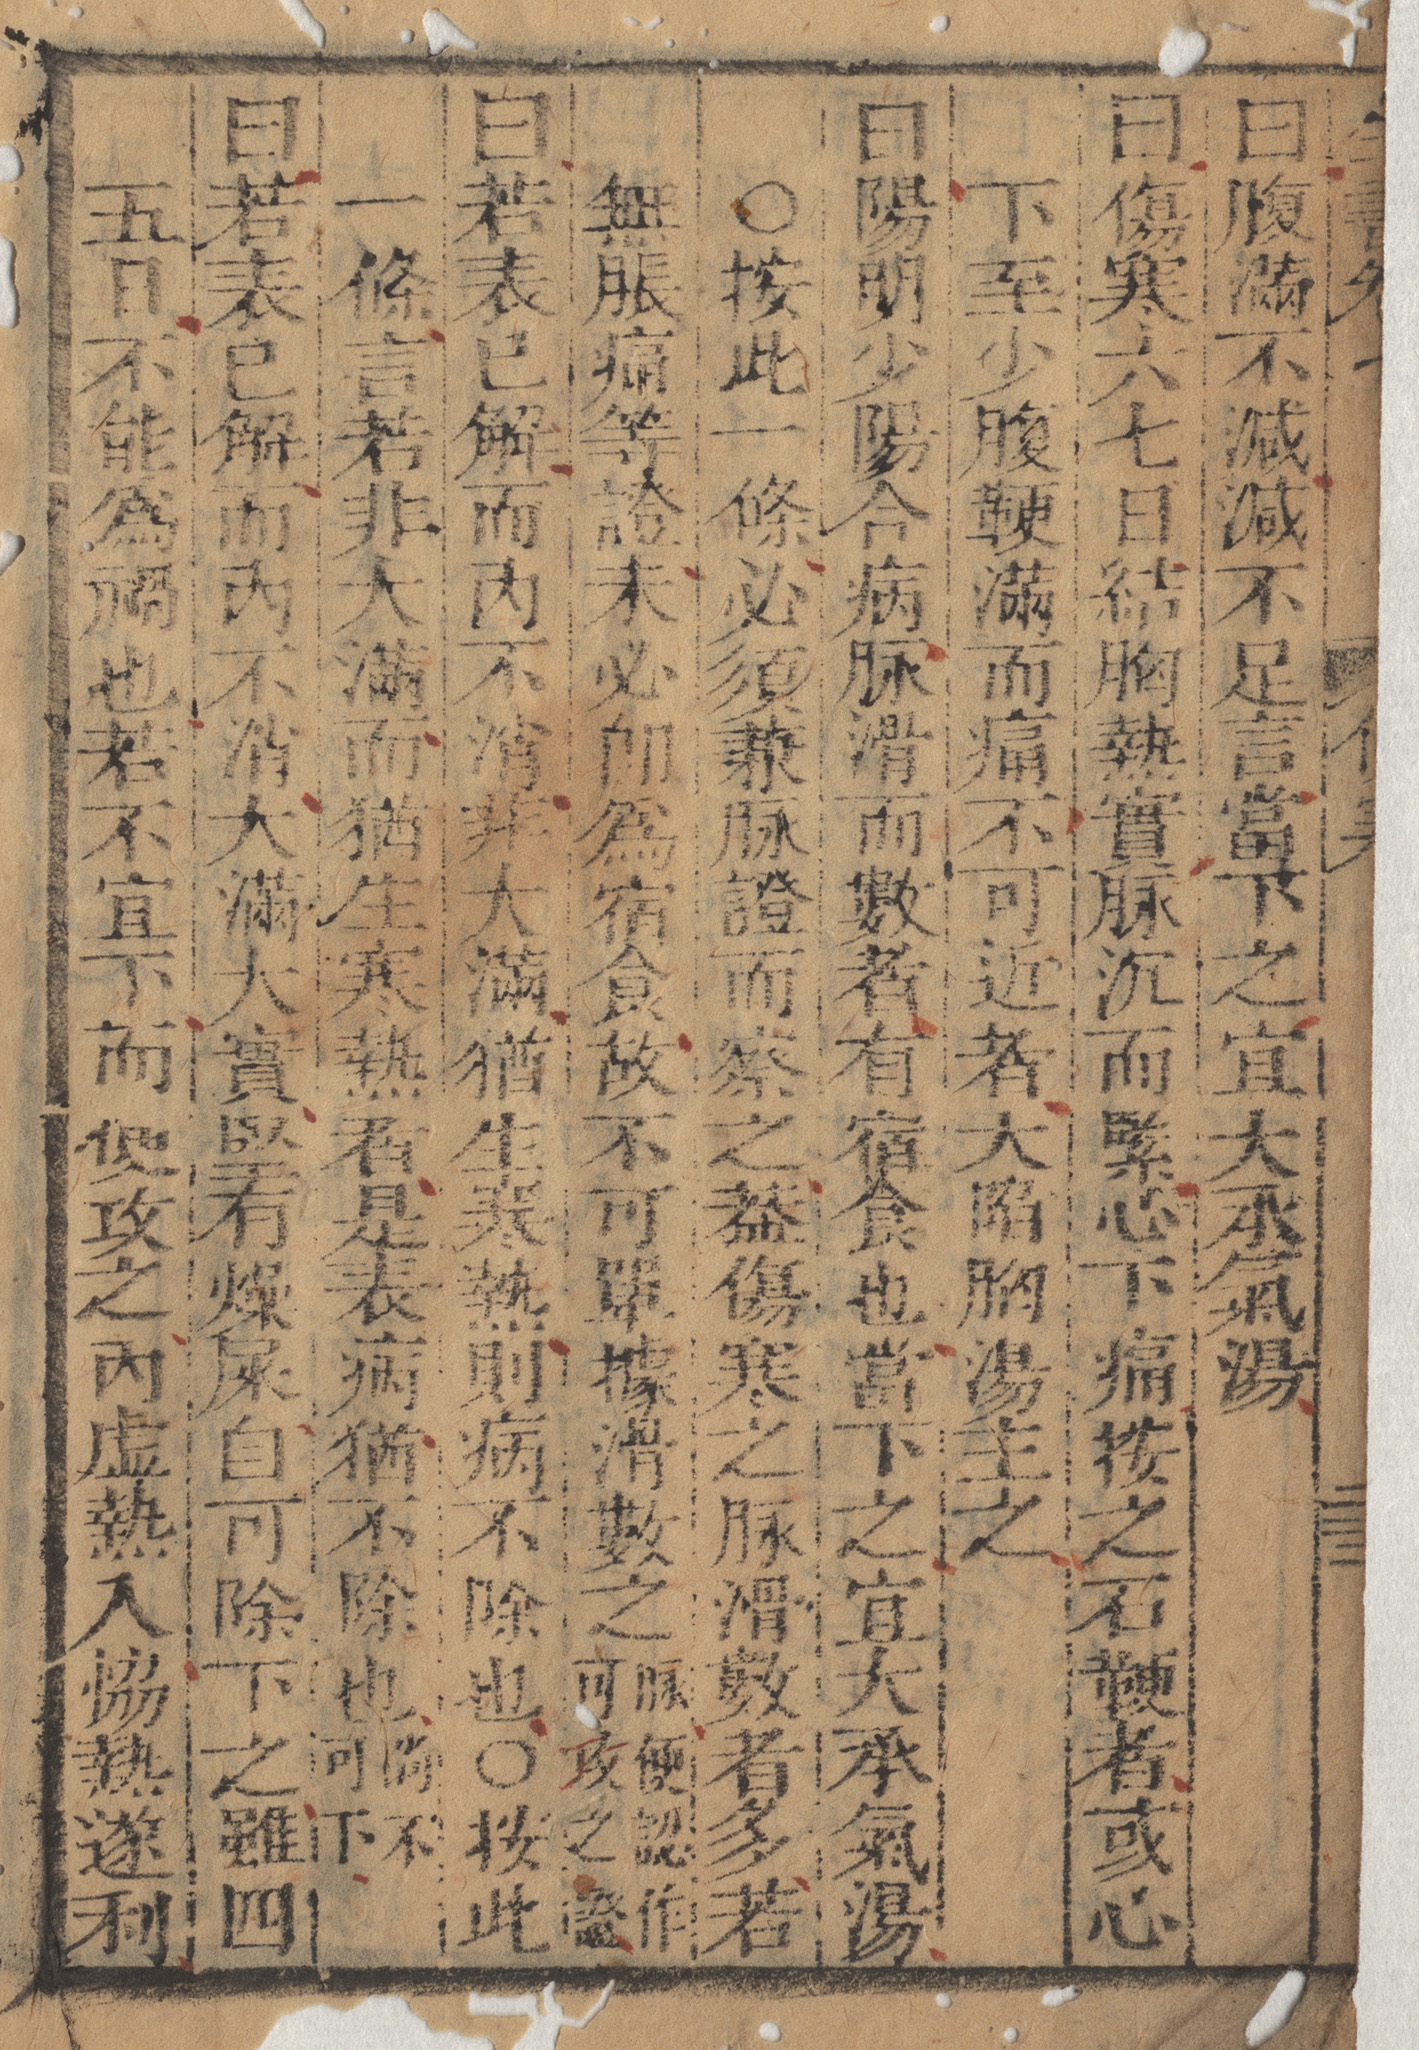 曰腹滿不減減不足言當下之宜大承氣湯
曰傷寒六七日結胸熱實脉沉而緊心下痛按之石鞕者或心
下至少腹鞕滿而痛不可近者大陷胸湯主之
曰陽明少陽合病脉滑而數者有宿食也當下之宜大承氣湯
○按此一條必須兼脉證而察之蓋傷寒之脉滑數者多若
無脹痛等證未必即爲宿食故不可單據滑數之
脉便認作
可攻之證
曰若表已解而內不消非大滿猶生寒熱則病不除也○按此
一條言若非大滿而猶生寒熱者是表病猶不除也
尚不
可下
曰若表已解而內不消大滿大實堅有燥屎自可除下之雖四
五日不能爲禍也若不宜下而便攻之內虛熱入恊熱遂利